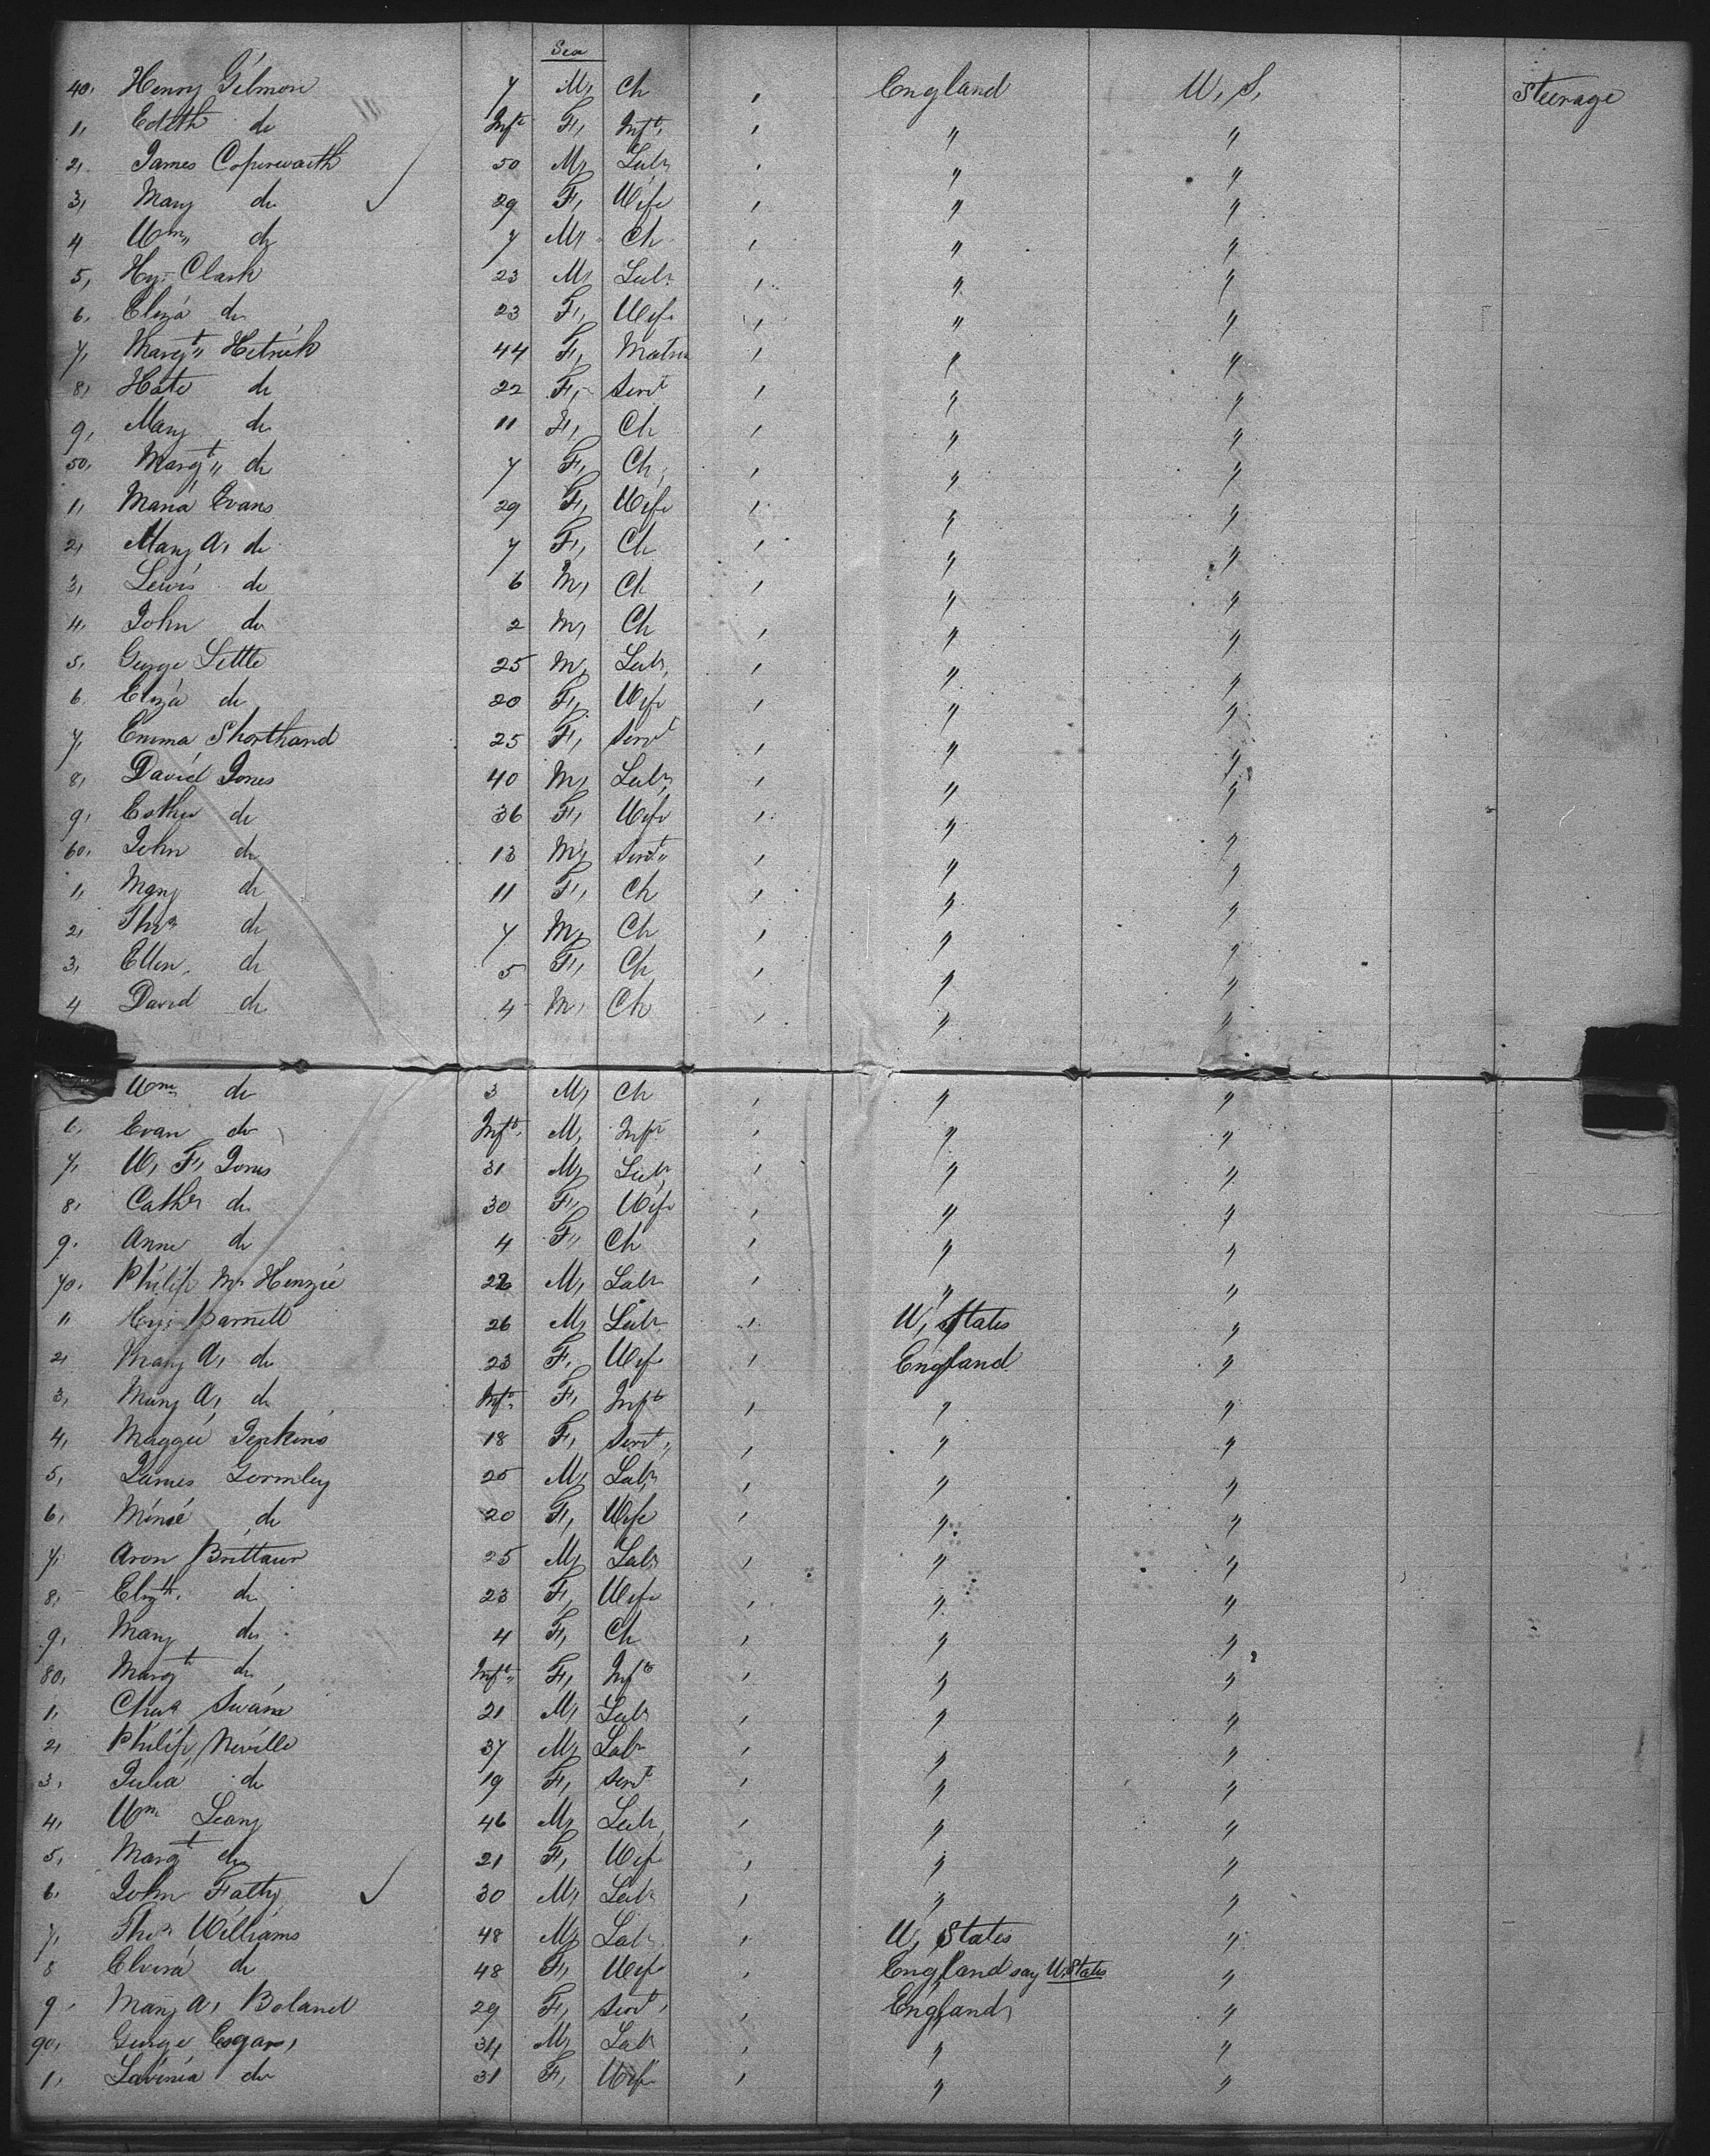 Sex
40, Henry Gilmore 7 M, Ch , England U, S, Steerage
1, Edith do Inft F, Inft, , " "
2, James 50 M, Labr , " "
3, Mary do 29 F, Wife , " "
4 Wm, do 7 M, Ch , " "
5, Hy, Clark 23 M, Labr , " "
6, Eliza do 23 F, Wife , " "
7, Margt, Hetrick 44 F, Matrn , " "
8, Kate do 22 F, Servt , " "
9, Mary do 11 F, Ch , " "
50, Margt, do 7 F, Ch, , " "
1, Maria Evans 29 F, Wife , " "
2, Mary A, do 7 F, Ch , " "
3, Lewis do 6 M, Ch , " "
4, John do 2 M, Ch , " "
5, George Little 25 M, Labr, , " "
6, Eliza do 20 F, Wife , " "
7, Emma Shorthand 25 F, Servt , " "
8, David Jones 40 M, Labr, , " "
9, Esther do 36 F, Wife , " "
60, John do 13 M, Servt, , " "
1, Mary do 11 F, Ch , " "
2, Thos do 7 M, Ch , " "
3, Ellen, do 5 F, Ch , " "
4 David do 4 M, Ch , " "
Wm do 3 M, Ch , " "
6, Evan do Inft, M, Inft , " "
7, W, F, Jones 31 M, Labr, , " "
8, Cathr do 30 F, Wife , " "
9, Anne do 4 F, Ch , " "
70, Philip Mc Kenzie M, Labr , " "
1, Hy, Barnett 26 M, Labr , W, States "
2, Mary A, do 23 F, Wife , England "
3, Mary A, do Inft, F, Inft , " "
4, Maggie Jenkins 18 F, Servt, , " "
5, James Gormley 25 M, Labr, , " "
6, Minie do 20 F, Wife , " "
7, Aron 25 M, Labr , " "
8, Elizth, do 23 F, Wife , " "
9, Mary do 4 F, Ch , " "
80, Margt do Inft, F, Inft , " "
1, Chas 21 M, Labr , " "
2, Philip Neville 37 M, Labr , " "
3, Julia do 19 F, Servt , " "
4, Wm Leary 46 M, Labr, , " "
5, Margt do 21 F, Wife , " "
6, John 30 M, Labr , " "
7, Thos Williams 48 M, Labr , U, States "
8 Elvira do 48 F, Wife , England say U. States "
9, Mary A, Boland 29 F, Servt, , England "
90, George 34 M, Labr , " "
1, Lavinia do 31 F, Wife , " "